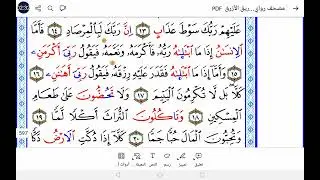 مصحف رواي... ريق الأزرق PDF
عَلَيْهِمْ رَبُّكَ سَوْطَ عَذَابٍ ١٣ اِنَّ رَبَّكَ لَبِالْمِرْصَادِ ١٤ فَأَمَّا
اَلِانسَٰنُ إِذَا مَا اَبْتَلَىٰهُ رَبُّهُۥ فَأَكْرَمَهُۥ وَنَعَّمَهُۥ فَيَقُولُ رَبِّيَ أَكْرَمَنِۦ
١٥ وَأَمَّا إِذَا مَا اَبْتَلَىٰهُ فَقَدَرَ عَلَيْهِ رِزْقَهُۥ فَيَقُولُ رَبِّيَ أَهَٰنَنِۦ ١٦
كَلَّا بَل لَّا تُكْرِمُونَ اَلْيَتِيمَ ١٧ وَلَا تَحُضُّونَ عَلَىٰ طَعَامِ
اِلْمِسْكِينِ ١٨ وَتَاكُلُونَ اَلتُّرَاثَ أَكْلًا لَّمًّا ١٩
597
وَتُحِبُّونَ اَلْمَالَ حُبًّا جَمًّا ٢٠ كَلَّا إِذَا دُكَّتِ اِلَارْضُ دَكًّا